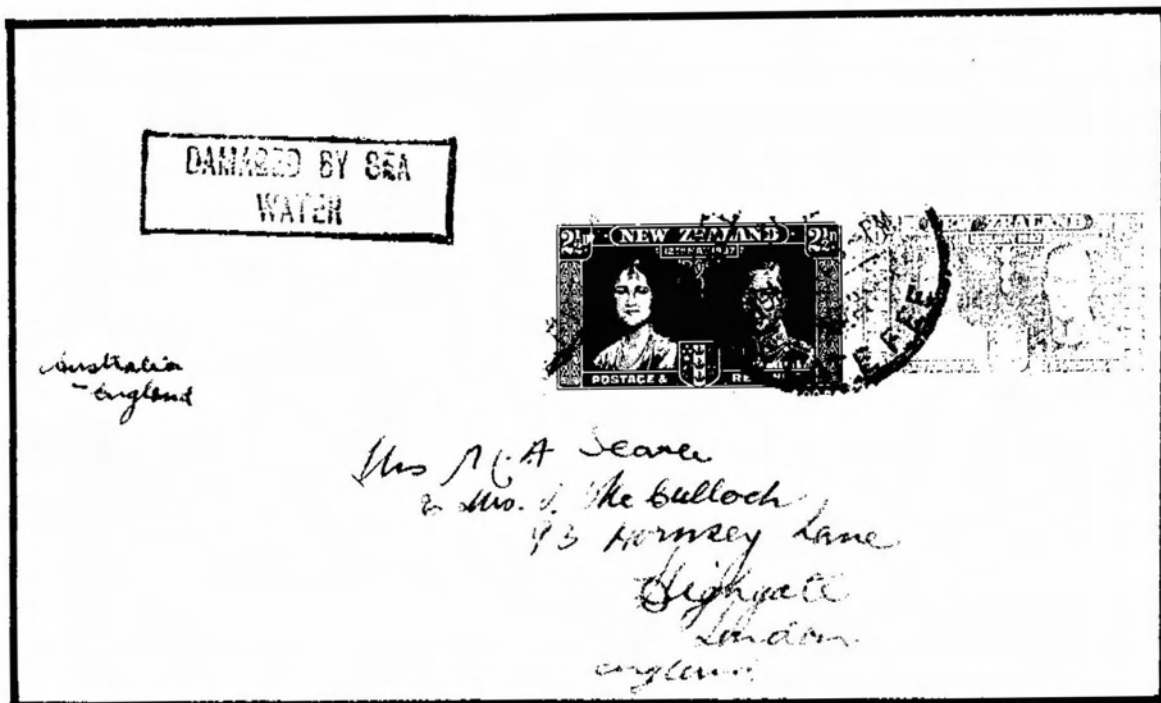 DAMAGED BY SEA
WATER
2½D NEW ZEALAND 2½D
12TH MAY 1937
POSTAGE &
ZEALAND
Australia
- England
Mrs A Searle
Mrs. McCulloch
93 Hornsey Lane
Highgate
London
England